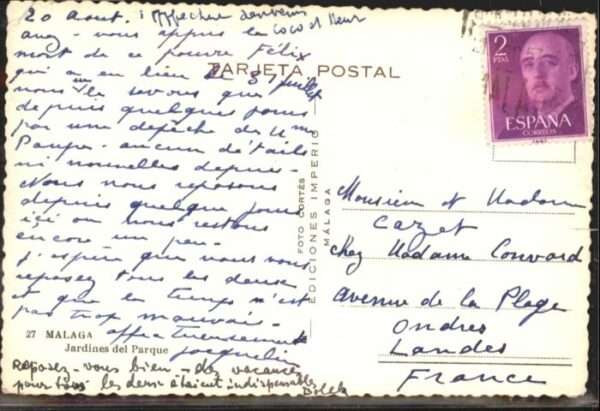 20 Aout. Affectueux souvenirs
avez-vous appris la
mort de ce pauvre Félix
TARJETA POSTAL
qui a eu lieu le 3 juillet
nous le savons que
depuis quelques jours
par une depêche de Mme
aucun détails
ni nouvelles depuis-
Nous nous reposons
depuis quelques jours
ici ou nous restons
encore un peu-
J'espère que vous vous
reposez tous les deux
et que le temps n'est
pas trop mauvais-
affectueusement
27 MALAGA
Jardines del Parque
Jacqueline
Reposez-vous bien - des vacances
pour tous les deux étaient indispensables
FOTO CORTÉS
EDICIONES IMPERIO
MÁLAGA
2
PTA
ESPAÑA
CORREOS
Monsieur et Madame
Cazet
chez Madame Convard
avenue de la Plage
Ondres
Landes
France